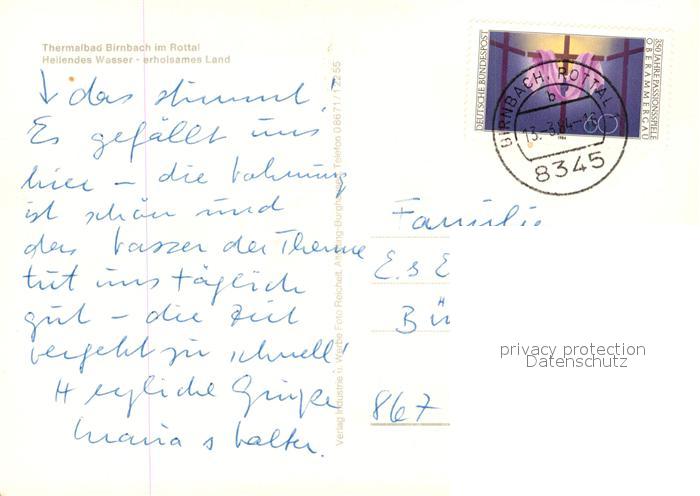 Thermalbad Birnbach im Rottal
Heilendes Wasser - erholsames Land
↓ das stimmt!
Es gefällt uns
hier – die Wohnung
ist schön und
das Wasser der Therme
tut uns täglich
gut – die Zeit
vergeht zu schnell!
Herzliche Grüße
Maria + Walter.
Verlag Industrie u. Werbe Foto Reichelt, Telefon 08671/ 2255
DEUTSCHE BUNDESPOST
350 JAHRE PASSIONSSPIELE
OBERAMMERGAU
60
BIRNBACH, ROTTAL
b
13.-3.84-16
8345
Familie
E. s E
Bü
867
privacy protection
Datenschutz